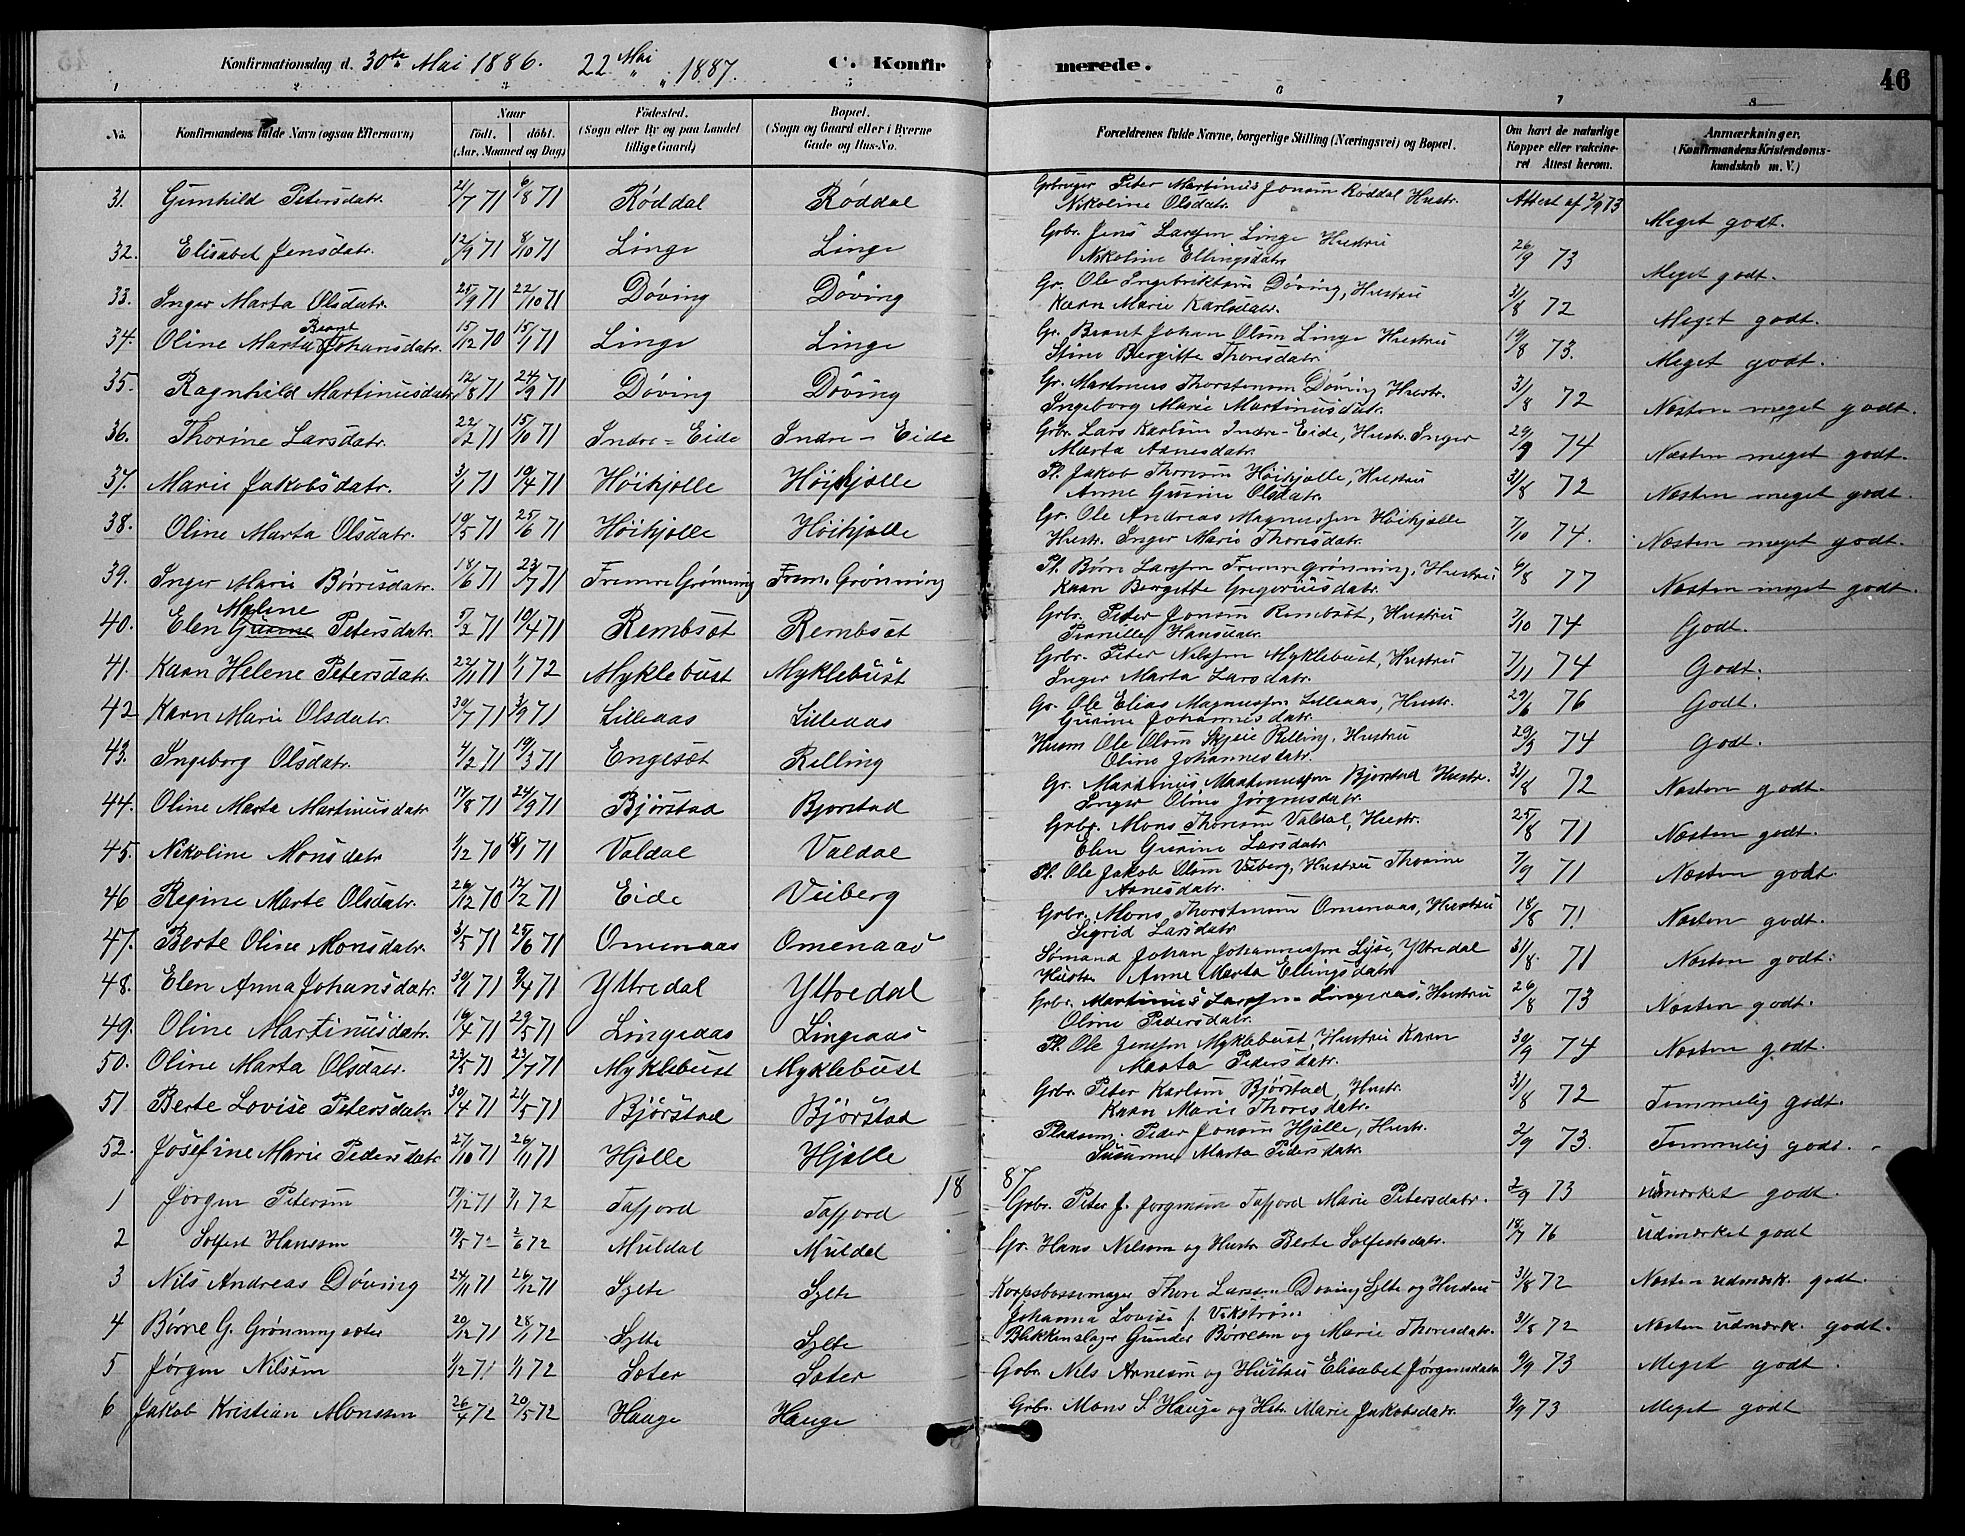 Konfirmationsdag d. 30te Mai 1886. 22 Mai 1887. C. Konfirmerede. 46
1 2 3 5 6 7 8
No. Konfirmandens fulde Navn (ogsaa Efternavn) Naar født. døbt. (Aar, Maaned og Dag) Fødested. (Sogn eller By og paa Landet tillige Gaard) Bopæl. (Sogn og Gaard eller i Byerne Gade og Hus-No. Forældrenes fulde Navne, borgerlige Stilling (Næringsvei) og Bopæl. Om havt de naturlige Kopper eller vakcineret Attest herom. Anmærkninger. (Konfirmandens Kristendomskundskab m. V.)
31. Gunhild Petersdatr. 21/7 71 6/8 71 Røddal Røddal Grbruger Peter Martinus Jonsen Røddal Hustr. Nikoline Olsdatr. Attest af 2/9 73 Meget godt.
32. Elisabet Jensdatr. 12/9 71 8/10 71 Linge Linge Grbr. Jens Larssen Linge Hustru Nikoline Ellingsdatr. 26/9 73 Meget godt.
33. Inger Marta Olsdatr. 25/9 71 22/10 71 Døving Døving Gr. Ole Ingebriktsen Døving, Hustru Karn Marie Karlsdatr. 31/8 72 Meget godt.
34. Oline Marta Brant Johansdatr. 15/12 70 15/1 71 Linge Linge Gr. Brant Johan Olsen Linge Hustru Stine Bergitte Thoresdatr. 19/8 73. Meget godt.
35. Ragnhild Martinusdatr. 12/8 71 24/9 71 Døving Døving Gr. Martinus Thorstensen Døving Hustr. Ingeborg Marie Martinusdatr. 31/8 72 Næsten meget godt.
36. Thorine Larsdatr. 22/ 71 15/10 71 Indre=Eide Indre-Eide Grbr. Lars Karlsen Indre-Eide, Hustr. Inger Marta Arnesdatr. 29/9 74 Næsten meget godt.
37. Marie Jakobsdatr. 3/1 71 10/4 71 Høihjølle Høihjølle Pl. Jakob Thoresen Høihjølle, Hustru Anne Gurine Olsdatr. 31/8 72 Næsten meget godt.
38. Oline Marta Olsdatr. 19/5 71 25/6 71 Høihjølle Høihjølle Gr. Ole Andreas Magnussen Høihjølle Hustr. Inger Marie Thoresdatr. 7/10 74. Næsten meget godt.
39. Inger Marie Børresdatr. 18/6 71 23/7 71 Fremre Grønning Frem. Grønning Pl. Børre Larssen Fremre Grønning, Hustru Karn Bergitte Gregoriusdatr. 6/8 77 Næsten meget godt.
40. Elen Malene Petersdatr. 5/2 71 10/4 71 Rembsøt Rembsøt Grbr. Peter Jonsen Rembsøt, Hustru Pernille Hansdatr. 7/10 74 Godt.
41. Karn Helene Petersdatr. 22/11 71 1/1 72 Myklebust Myklebust Grbr. Peter Nilssen Myklebust, Hustru Inger Marta Larsdatr. 7/11 74 Godt.
42 Karn Marie Olsdatr. 30/7 71 3/9 71 Lilleaas Lilleaas Gr. Ole Elias Magnussen Lilleaas, Hustr. Gurine Johannesdatr. 29/6 76 Godt.
43. Ingeborg Olsdatr. 4/2 71 19/3 71 Engesøt Relling Husm Ole Olsen Skjeie Relling, Hustru Oline Johannesdatr. 29/9 74 Godt.
44. Oline Marta Martinusdatr. 14/8 71 24/9 71 Bjørstad Bjørstad Gr. Martinus Martinussen Bjørstad Hustr. Inger Oline Jørgensdatr. 31/8 72 Næsten godt.
45. Nikoline Monsdatr 1/12 70 15/1 71 Valdal Valdal Grbr. Mons Thoresen Valdal, Hustr. Elen Gurine Larsdatr. 25/8 71 Næsten godt.
46 Regine Marte Olsdatr. 26/12 70 12/2 71 Eide Veiberg Pl. Ole Jakob Olsen Veiberg, Hustru Thorine Arnesdatr. 7/9 71 Næsten godt.
47. Berte Oline Monsdatr. 3/5 71 25/6 71 Omenaas Omenaas Grbr. Mons Thorstensen Omenaas, Hustru Sigrid Larsdatr. 18/8 71 Næsten godt.
48. Elen Anna Johansdatr. 30/1 71 9/4 71 Yttredal Yttredal Sømand Johan Johannessen Lyse, Yttredal Hustr. Anne Marta Ellingsdatr. 31/8. 71 Næsten godt.
49. Oline Martinusdatr. 16/4 71 29/5 71 Lingeaas Lingeaas Grbr. Martinus Larssen Lingeaas, Hustru Oline Pedersdatr. 26/8 73 Næsten godt.
50. Oline Marta Olsdatr. 23/5 71 23/7 71 Myklebust Myklebust Pl. Ole Jenssen Myklebust, Hustru Karn Marta Pedersdatr. 30/9 74 Næsten godt.
51 Berte Lovise Petersdatr. 30/4 71 21/5 71 Bjørstad Bjørstad Grbr. Peter Karlsen Bjørstad, Hustr. Karn Marie Thoresdatr. 31/8 72 Temmelig godt.
52. Josefine Marie Pedersdatr 27/10 71 26/11 71 Hjelle Hjelle Pladsm. Peder Jonsen Hjelle, Hustr. Susanne Marta Pedersdatr. 2/9 73. Temmelig godt.
1887
1 Jørgen Petersen 17/12 71 7/1 72 Tafjord Tafjord Grbr. Peter J. Jørgensen Tafjord Marie Petersdatr. 2/9 73 udmærket godt.
2 Solfest Hanssen 17/5 72 2/6 72 Muldal Muldal Gr. Hans Nilsen og Hustr Berte Solfestsdatr. 18/7 76 udmærket godt
3 Nils Andreas Døving 24/11 71 26/12 71 Sylte Sylte Korpsbøssemager Thore Larssen Døving Sylte og Hustru Johanna Lovise f. Vikstrøm 31/8 72 Næsten udmærk. godt.
4 Børre G. Grønningsæter 20/12 71 28/1 72 Sylte Sylte Blikkenslager Gunder Børresen og Marie Thoresdatr. 31/8 72 Næsten udmærk. godt.
5 Jørgen Nilssen 1/12 71 1/1 72 Sæter Sæter Grbr. Nils Arnesen og Hustru Elisabet Jørgensdatr 9/9 73 Meget godt.
6 Jakob Kristian Monssen 26/4 72 20/5 72 Hauge Hauge Grbr. Mons S. Hauge og Hstr. Marie Jakobsdatr. 9/9 73 Meget godt